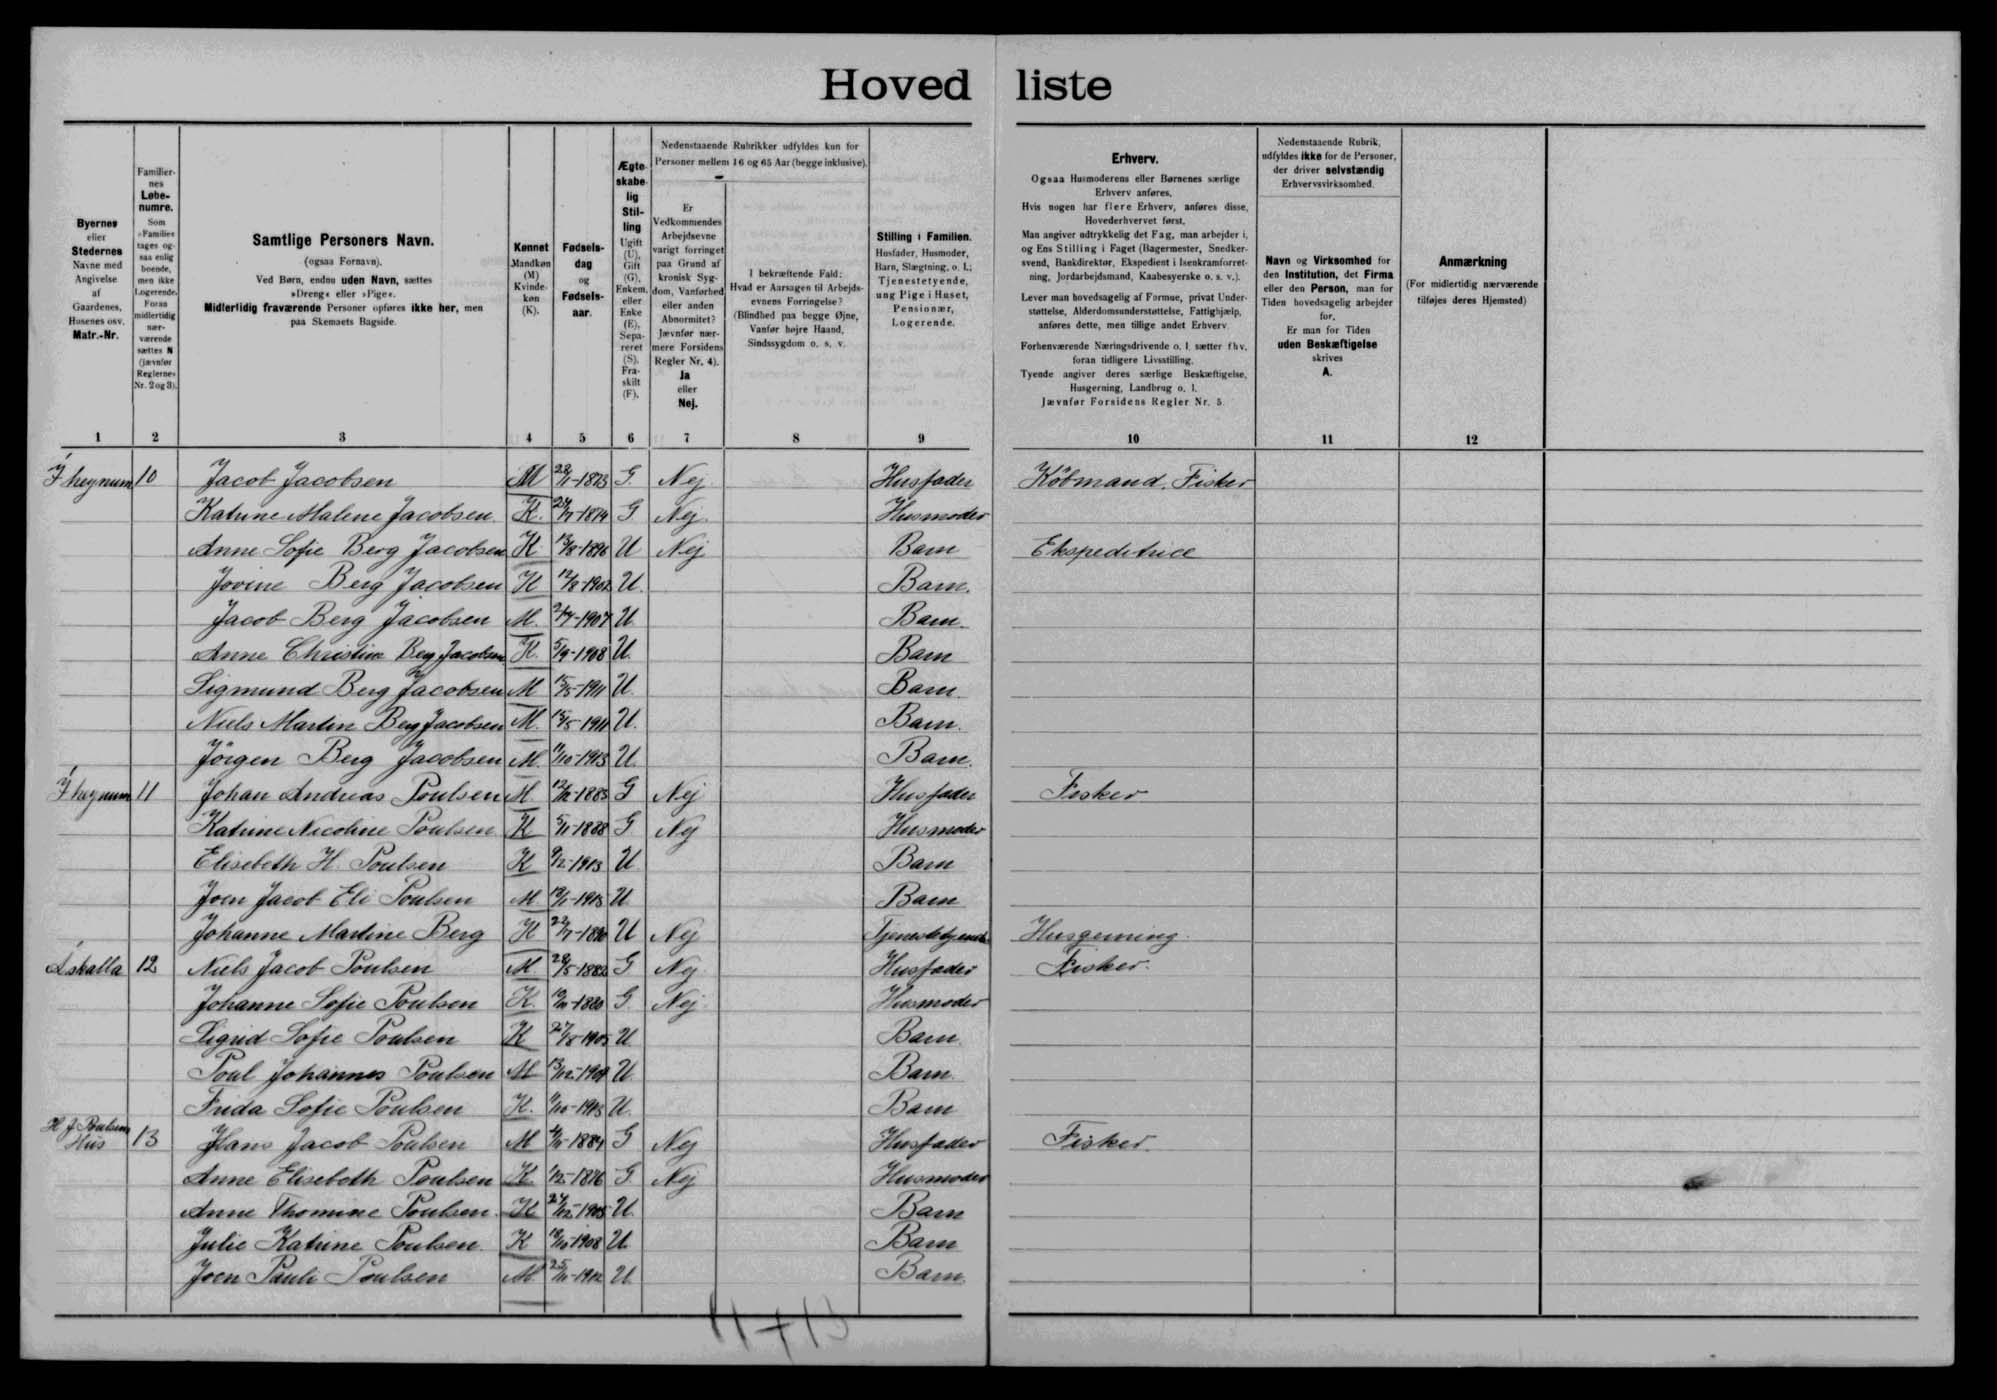 Hovedliste
Byernes
eller
Stedernes
Navne med
Angivelse
af
Gaardenes,
Husenes osv.
Matr.-Nr.
Familier-
nes
Løbe-
numre.
Som
»Familie«
tages og-
saa enlig
boende,
men ikke
Logerende.
Foran
midlertidig
nær-
værende
sættes N
(jævnfør
Reglernes
Nr. 2 og 3).
Samtlige Personers Navn.
(ogsaa Fornavn).
Ved Børn, endnu uden Navn, sættes
»Dreng« eller »Pige«.
Midlertidig fraværende Personer opføres ikke her, men
paa Skemaets Bagside.
Kønnet
Mandkøn
(M)
Kvinde-
køn
(K).
Fødsels-
dag
og
Fødsels-
aar.
Ægte-
skabe-
lig
Stil-
ling
Ugift
(U),
Gift
(G),
Enkem.
eller
Enke
(E),
Sepa-
reret
(S).
Fra-
skilt
(F).
Nedenstaaende Rubrikker udfyldes kun for
Personer mellem 16 og 65 Aar (begge inklusive).
Er
Vedkommendes
Arbejdsevne
varigt forringet
paa Grund af
kronisk Syg-
dom, Vanførhed
eller anden
Abnormitet?
Jævnfør nær-
mere Forsidens
Regler Nr. 4).
Ja
eller
Nej.
I bekræftende Fald:
Hvad er Aarsagen til Arbejds-
evnens Forringelse?
(Blindhed paa begge Øjne,
Vanfør højre Haand,
Sindssygdom o. s. v.
Stilling i Familien.
Husfader, Husmoder,
Barn, Slægtning, o. l.;
Tjenestetyende,
ung Pige i Huset,
Pensionær,
Logerende.
Erhverv.
Ogsaa Husmoderens eller Børnenes særlige
Erhverv anføres.
Hvis nogen har flere Erhverv, anføres disse,
Hovederhvervet først.
Man angiver udtrykkelig det Fag, man arbejder i,
og Ens Stilling i Faget (Bagermester, Snedker-
svend, Bankdirektør, Ekspedient i Isenkramforret-
ning, Jordarbejdsmand, Kaabesyerske o. s. v.).
Lever man hovedsagelig af Formue, privat Under-
støttelse, Alderdomsunderstøttelse, Fattighjælp,
anføres dette, men tillige andet Erhverv.
Forhenværende Næringsdrivende o. l. sætter fhv.
foran tidligere Livsstilling.
Tyende angiver deres særlige Beskæftigelse,
Husgerning, Landbrug o. l.
Jævnfør Forsidens Regler Nr. 5.
Nedenstaaende Rubrik,
udfyldes ikke for de Personer,
der driver selvstændig
Erhvervsvirksomhed.
Navn og Virksomhed for
den Institution, det Firma
eller den Person, man for
Tiden hovedsagelig arbejder
for.
Er man for Tiden
uden Beskæftigelse
skrives
A.
Anmærkning
(For midlertidig nærværende
tilføjes deres Hjemsted)
1 2 3 4 5 6 7 8 9 10 11 12
Í heynum 10 Jacob Jacobsen M 1873 G. Nej Husfader Köbmand, Fisker
Katrine Malene Jacobsen K. 1874 G Nej. Husmoder
Anne Sofie Berg Jacobsen K 13/8-1896 U Nej Barn Ekspeditrice
Jovine Berg Jacobsen K 12/8-1902 U. Barn.
Jacob Berg Jacobsen M. 2/4-1907 U. Barn.
Anne Christine Berg Jacobsen K. 5/9-1908 U. Barn
Sigmund Berg Jacobsen M 15/5-1911 U. Barn.
Niels Martin Berg Jacobsen M. 15/5-1911 U. Barn.
Jörgen Berg Jacobsen M. 11/10-1913 U. Barn.
Í heynum 11 Johan Andreas Poulsen M 1883 G Nej Husfader Fisker
Katrine Nicoline Poulsen K 5/11-1888 G. Nej Husmoder
Elisebeth H. Poulsen K 9/2-1913 U Barn
Joen Jacob Eli Poulsen M. 1915 U Barn
Johanne Martine Berg K U Nej Tjenestetyende Husgerning.
Á skalla 12 Niels Jacob Poulsen M. 28/5-1882 G Nej. Husfader Fisker.
Johanne Sofie Poulsen K. 1880 G. Nej. Husmoder
Sigrid Sofie Poulsen K 27/8-1905 U Barn.
Poul Johannes Poulsen M 13/12-1909 U. Barn.
Frida Sofie Poulsen K. 1913 U. Barn
H J Poulsens Hus 13 Hans Jacob Poulsen M G Nej Husfader Fisker.
Anne Elisebeth Poulsen K. 1/12-1876 G. Nej Husmoder
Anne Thomine Poulsen. K 27/12-1905 U. Barn
Julie Katrine Poulsen. K 18/10-1908 U. Barn
Joen Pauli Poulsen M. 25/11-1912 U. Barn.
11+13